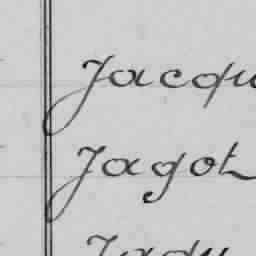 Jacqu
Jagot